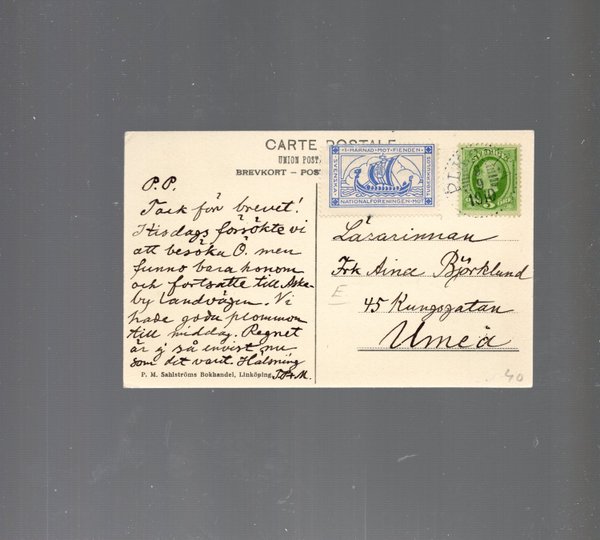 CARTE POSTALE
UNION POST
BREVKORT – POS
I MARNAD MOT FIENDEN
NATIONALFÖRENINGEN MOT
P.P.
Tack för brevet!
Tisdags försökte vi
att besöka O. men
funno bara honom
och fortsatte till Aske-
by landvägen. Vi
hade goda plommon
till middag. Regnet
är ej så envist nu
som det varit. Hälsning
P. M. Sahlströms Bokhandel, Linköping.
Lärarinnan
Frk Aina Björklund
45 Kungsgatan
Umeå
E
40